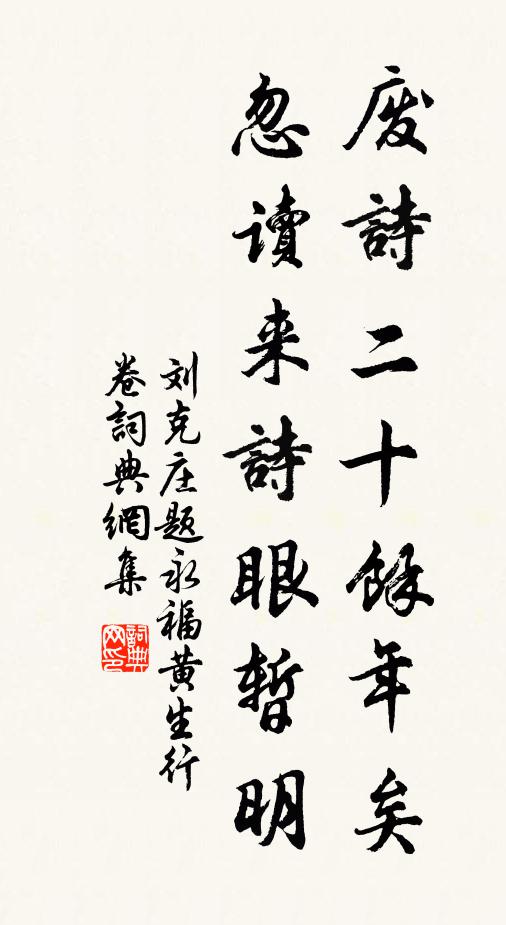 废詩二十餘年矣
忽读来詩眼暫明
刘克庄题永福黄生行
卷詞典網集
詞典
网印